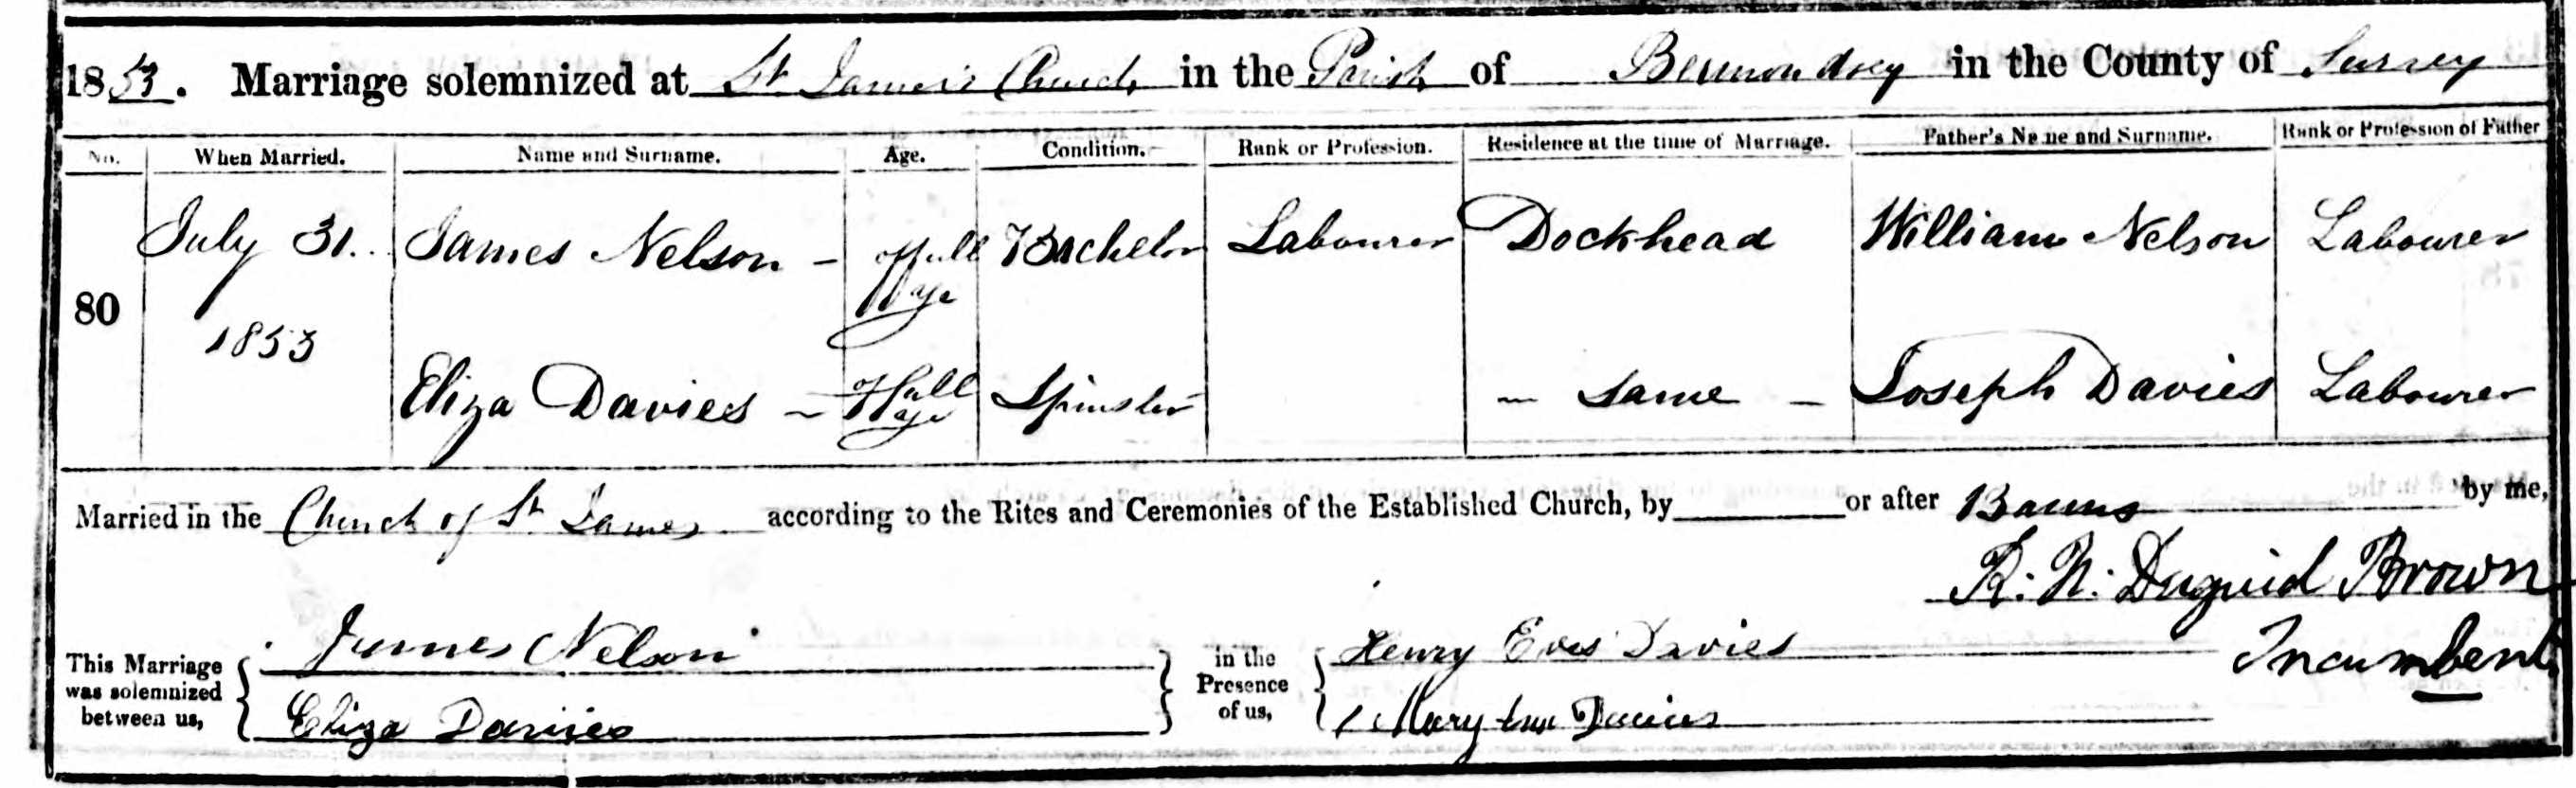 1853. Marriage solemnized at St James's Church in the Parish of Bermondsey in the County of Surrey
No. When Married. Name and Surname. Age. Condition. Rank or Profession. Residence at the time of Marriage. Father's Name and Surname. Rank or Profession of Father
80 July 31. 1853 James Nelson - Full Age Bachelor Labourer Dockhead William Nelson Labourer
Eliza Davies - Full Age Spinster - same - Joseph Davies Labourer
Married in the Church of St James according to the Rites and Ceremonies of the Established Church, by or after Banns by me,
R. N. Duguid Brown
Incumbent
This Marriage was solemnized between us, James Nelson in the Presence of us, Henry Davies
Eliza Davies Mary Ann Davies